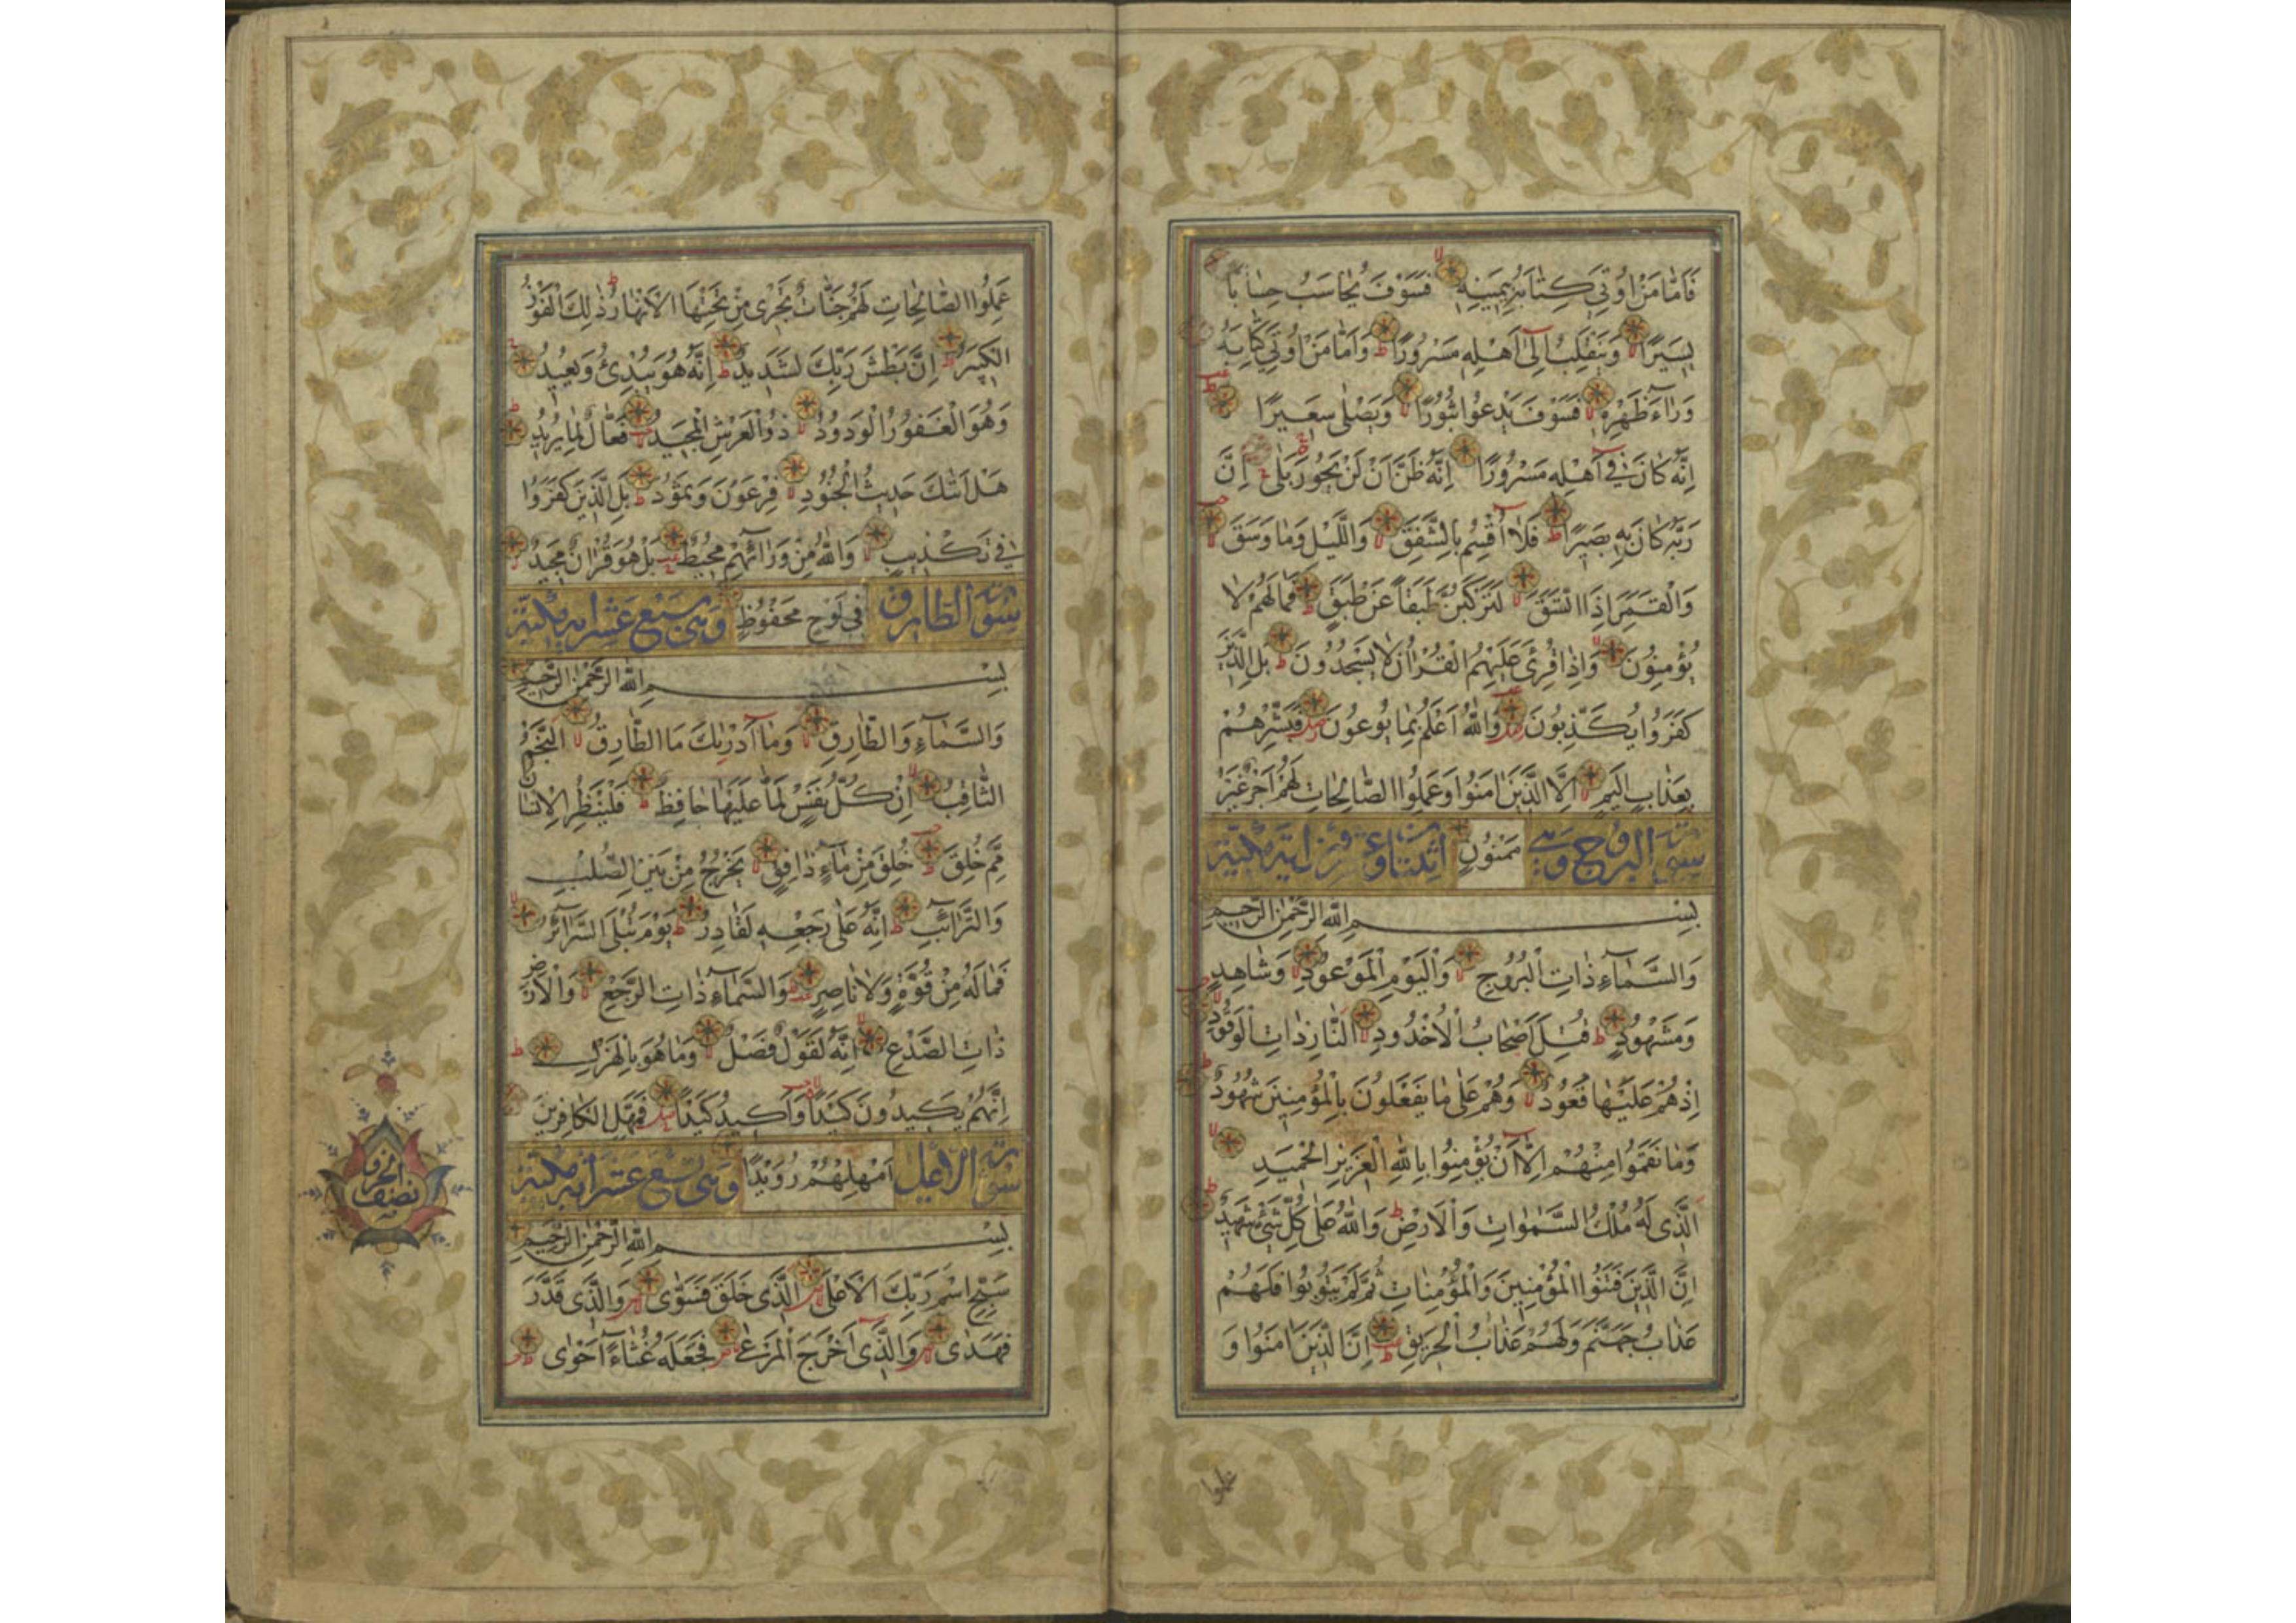 فَاَمَّا مَنْ اُوتِيَ كِتَابَهُ بِيَمِينِهِ فَسَوْفَ يُحَاسَبُ حِسَابًا
يَسِيرًا وَيَنْقَلِبُ اِلٰى اَهْلِهِ مَسْرُورًا وَاَمَّا مَنْ اُوتِيَ كِتَابَهُ
وَرَاءَ ظَهْرِهِ فَسَوْفَ يَدْعُوا ثُبُورًا وَيَصْلٰى سَعِيرًا
اِنَّهُ كَانَ فِي اَهْلِهِ مَسْرُورًا اِنَّهُ ظَنَّ اَنْ لَنْ يَحُورَ بَلٰى اِنَّ
رَبَّهُ كَانَ بِهِ بَصِيرًا فَلَا اُقْسِمُ بِالشَّفَقِ وَاللَّيْلِ وَمَا وَسَقَ
وَالْقَمَرِ اِذَا اتَّسَقَ لَتَرْكَبُنَّ طَبَقًا عَنْ طَبَقٍ فَمَا لَهُمْ لَا
يُؤْمِنُونَ وَاِذَا قُرِئَ عَلَيْهِمُ الْقُرْاٰنُ لَا يَسْجُدُونَ بَلِ الَّذِينَ
كَفَرُوا يُكَذِّبُونَ وَاللّٰهُ اَعْلَمُ بِمَا يُوعُونَ فَبَشِّرْهُمْ
بِعَذَابٍ اَلِيمٍ اِلَّا الَّذِينَ اٰمَنُوا وَعَمِلُوا الصَّالِحَاتِ لَهُمْ اَجْرٌ غَيْرُ
سورة البروج وهي مَمْنُونٍ اثنتا وعشرون اية مكية
بِسْمِ اللّٰهِ الرَّحْمٰنِ الرَّحِيمِ
وَالسَّمَاءِ ذَاتِ الْبُرُوجِ وَالْيَوْمِ الْمَوْعُودِ وَشَاهِدٍ
وَمَشْهُودٍ قُتِلَ اَصْحَابُ الْاُخْدُودِ النَّارِ ذَاتِ الْوَقُودِ
اِذْ هُمْ عَلَيْهَا قُعُودٌ وَهُمْ عَلٰى مَا يَفْعَلُونَ بِالْمُؤْمِنِينَ شُهُودٌ
وَمَا نَقَمُوا مِنْهُمْ اِلَّا اَنْ يُؤْمِنُوا بِاللّٰهِ الْعَزِيزِ الْحَمِيدِ
الَّذِي لَهُ مُلْكُ السَّمٰوَاتِ وَالْاَرْضِ وَاللّٰهُ عَلٰى كُلِّ شَيْءٍ شَهِيدٌ
اِنَّ الَّذِينَ فَتَنُوا الْمُؤْمِنِينَ وَالْمُؤْمِنَاتِ ثُمَّ لَمْ يَتُوبُوا فَلَهُمْ
عَذَابُ جَهَنَّمَ وَلَهُمْ عَذَابُ الْحَرِيقِ اِنَّ الَّذِينَ اٰمَنُوا وَ
عملوا
عَمِلُوا الصَّالِحَاتِ لَهُمْ جَنَّاتٌ تَجْرِي مِنْ تَحْتِهَا الْاَنْهَارُ ذٰلِكَ الْفَوْزُ
الْكَبِيرُ اِنَّ بَطْشَ رَبِّكَ لَشَدِيدٌ اِنَّهُ هُوَ يُبْدِئُ وَيُعِيدُ
وَهُوَ الْغَفُورُ الْوَدُودُ ذُو الْعَرْشِ الْمَجِيدُ فَعَّالٌ لِمَا يُرِيدُ
هَلْ اَتٰيكَ حَدِيثُ الْجُنُودِ فِرْعَوْنَ وَثَمُودَ بَلِ الَّذِينَ كَفَرُوا
فِي تَكْذِيبٍ وَاللّٰهُ مِنْ وَرَائِهِمْ مُحِيطٌ بَلْ هُوَ قُرْاٰنٌ مَجِيدٌ
سورة الطارق فِي لَوْحٍ مَحْفُوظٍ وهي سبع عشر اية مكية
بِسْمِ اللّٰهِ الرَّحْمٰنِ الرَّحِيمِ
وَالسَّمَاءِ وَالطَّارِقِ وَمَا اَدْرٰيكَ مَا الطَّارِقُ اَلنَّجْمُ
الثَّاقِبُ اِنْ كُلُّ نَفْسٍ لَمَّا عَلَيْهَا حَافِظٌ فَلْيَنْظُرِ الْاِنْسَانُ
مِمَّ خُلِقَ خُلِقَ مِنْ مَاءٍ دَافِقٍ يَخْرُجُ مِنْ بَيْنِ الصُّلْبِ
وَالتَّرَائِبِ اِنَّهُ عَلٰى رَجْعِهِ لَقَادِرٌ يَوْمَ تُبْلَى السَّرَائِرُ
فَمَا لَهُ مِنْ قُوَّةٍ وَلَا نَاصِرٍ وَالسَّمَاءِ ذَاتِ الرَّجْعِ وَالْاَرْضِ
ذَاتِ الصَّدْعِ اِنَّهُ لَقَوْلٌ فَصْلٌ وَمَا هُوَ بِالْهَزْلِ
اِنَّهُمْ يَكِيدُونَ كَيْدًا وَاَكِيدُ كَيْدًا فَمَهِّلِ الْكَافِرِينَ
سورة الاعلى اَمْهِلْهُمْ رُوَيْدًا وهي تسع عشر اية مكية
بِسْمِ اللّٰهِ الرَّحْمٰنِ الرَّحِيمِ
سَبِّحِ اسْمَ رَبِّكَ الْاَعْلٰى اَلَّذِي خَلَقَ فَسَوّٰى وَالَّذِي قَدَّرَ
فَهَدٰى وَالَّذِي اَخْرَجَ الْمَرْعٰى فَجَعَلَهُ غُثَاءً اَحْوٰى
نصف الحزب